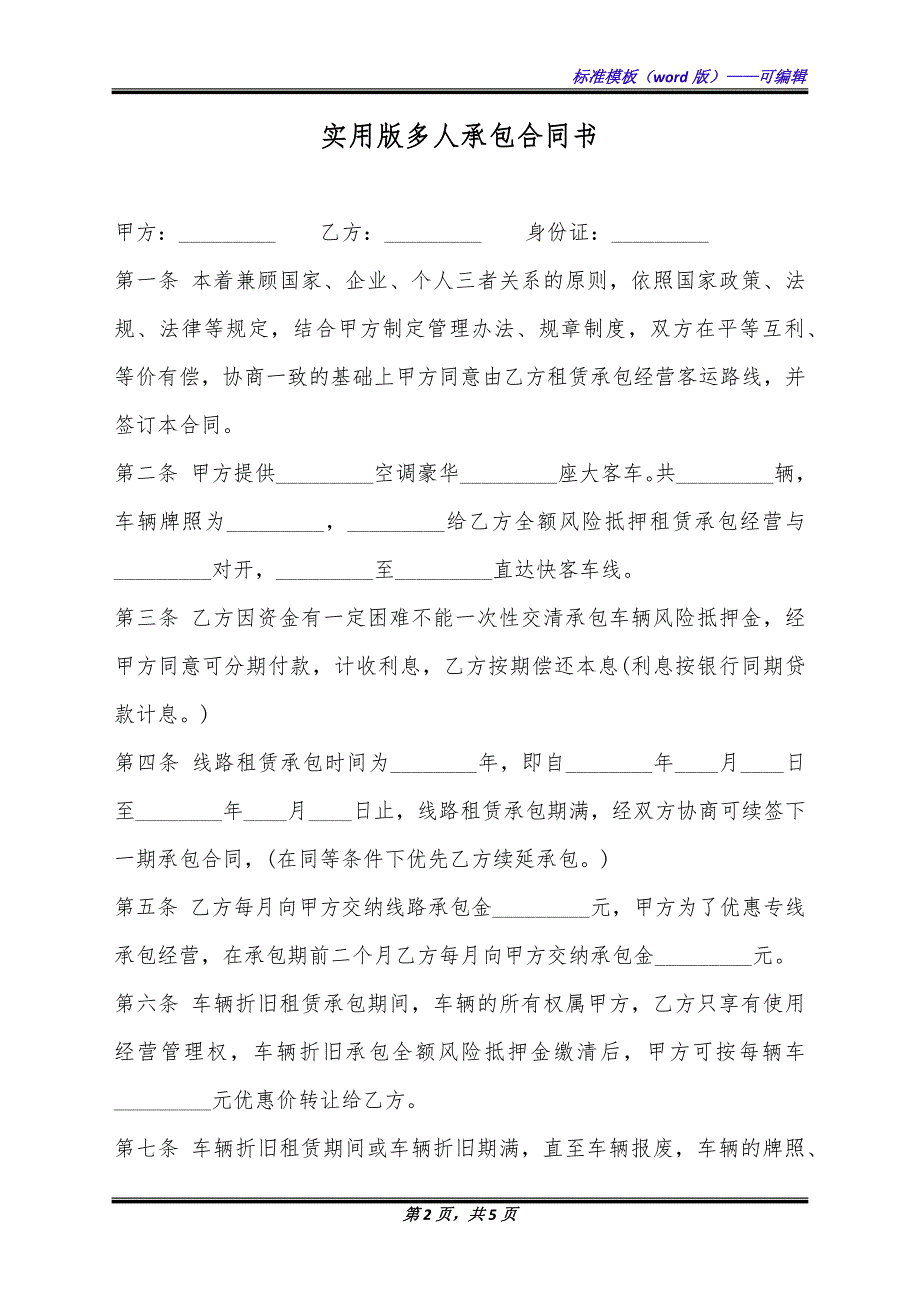 标准模板（word 版）——可编辑
实用版多人承包合同书
甲方：_________ 乙方：_________ 身份证：_________
第一条 本着兼顾国家、企业、个人三者关系的原则，依照国家政策、法
规、法律等规定，结合甲方制定管理办法、规章制度，双方在平等互利、
等价有偿，协商一致的基础上甲方同意由乙方租赁承包经营客运路线，并
签订本合同。
第二条 甲方提供_________空调豪华_________座大客车。共_________辆，
车辆牌照为_________，_________给乙方全额风险抵押租赁承包经营与
_________对开，_________至_________直达快客车线。
第三条 乙方因资金有一定困难不能一次性交清承包车辆风险抵押金，经
甲方同意可分期付款，计收利息，乙方按期偿还本息(利息按银行同期贷
款计息。)
第四条 线路租赁承包时间为________年，即自________年____月____日
至________年____月____日止，线路租赁承包期满，经双方协商可续签下
一期承包合同，(在同等条件下优先乙方续延承包。)
第五条 乙方每月向甲方交纳线路承包金_________元，甲方为了优惠专线
承包经营，在承包期前二个月乙方每月向甲方交纳承包金_________元。
第六条 车辆折旧租赁承包期间，车辆的所有权属甲方，乙方只享有使用
经营管理权，车辆折旧承包全额风险抵押金缴清后，甲方可按每辆车
_________元优惠价转让给乙方。
第七条 车辆折旧租赁期间或车辆折旧期满，直至车辆报废，车辆的牌照、
第 2 页，共 5 页